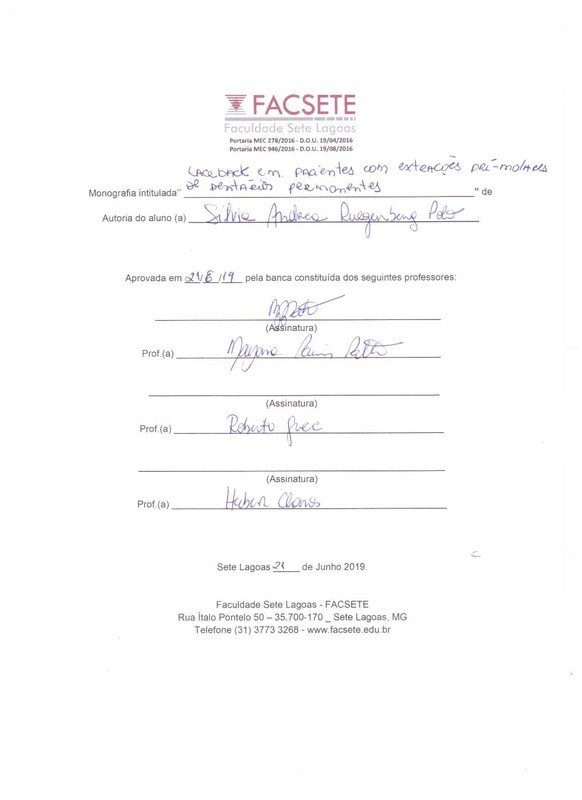 FACSETE
Faculdade Sete Lagoas
Portaria MEC 278/2016 - D.O.U. 19/04/2016
Portaria MEC 946/2016 - D.O.U. 19/08/2016
Laceback em pacientes com extrações pré-molares
Monografia intitulada" de dentários permanentes " de
Autoria do aluno (a) Silvia Andrea Polo
Aprovada em 21/6/19 pela banca constituída dos seguintes professores:
(Assinatura)
Prof.(a) Mayara
(Assinatura)
Prof.(a) Roberto
(Assinatura)
Prof.(a)
Sete Lagoas 21 de Junho 2019.
Faculdade Sete Lagoas - FACSETE
Rua Ítalo Pontelo 50 – 35.700-170 _ Sete Lagoas, MG
Telefone (31) 3773 3268 - www.facsete.edu.br